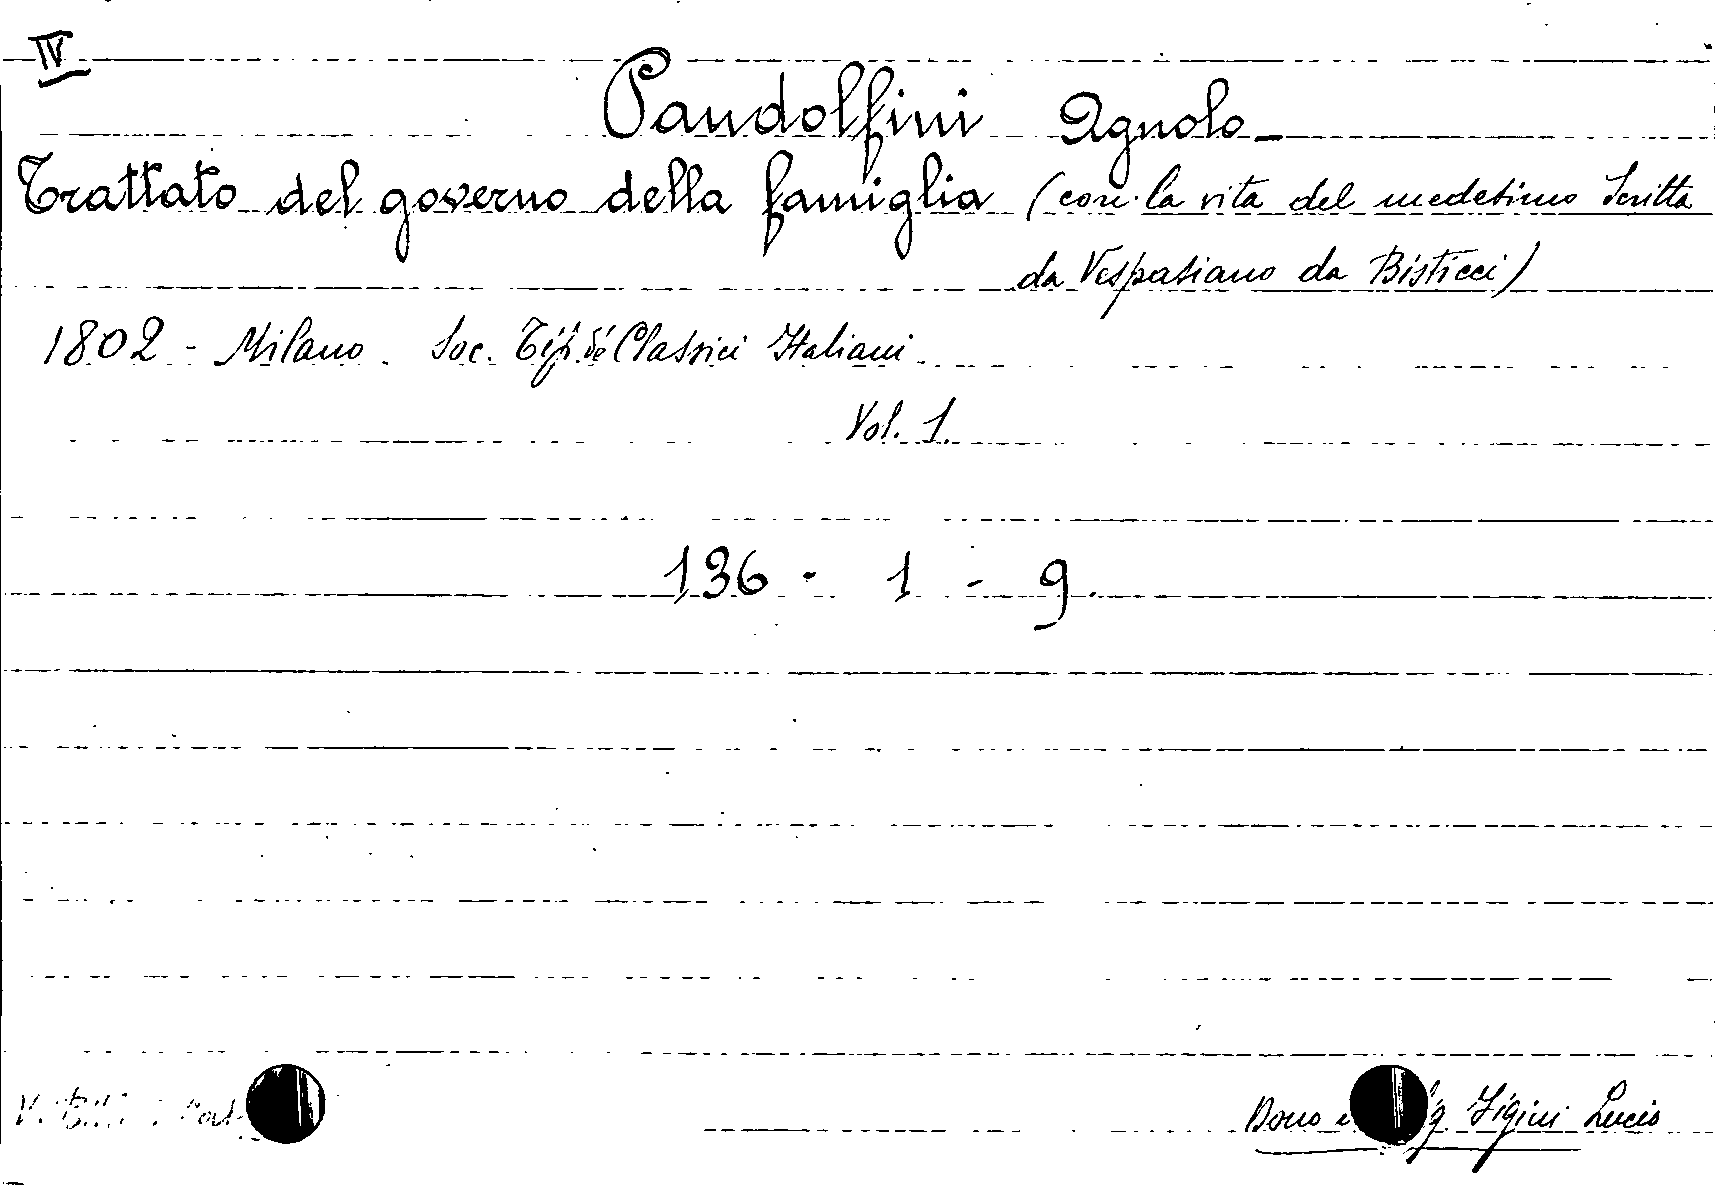 IV
Pandolfini Agnolo -
Trattato del governo della famiglia (con la vita del medesimo scritta
da Vespasiano da Bisticci)
1802 - Milano. Soc. Tip. de' Classici Italiani.
Vol. 1.
136 - 1 - 9.
Dono Figini Lucio